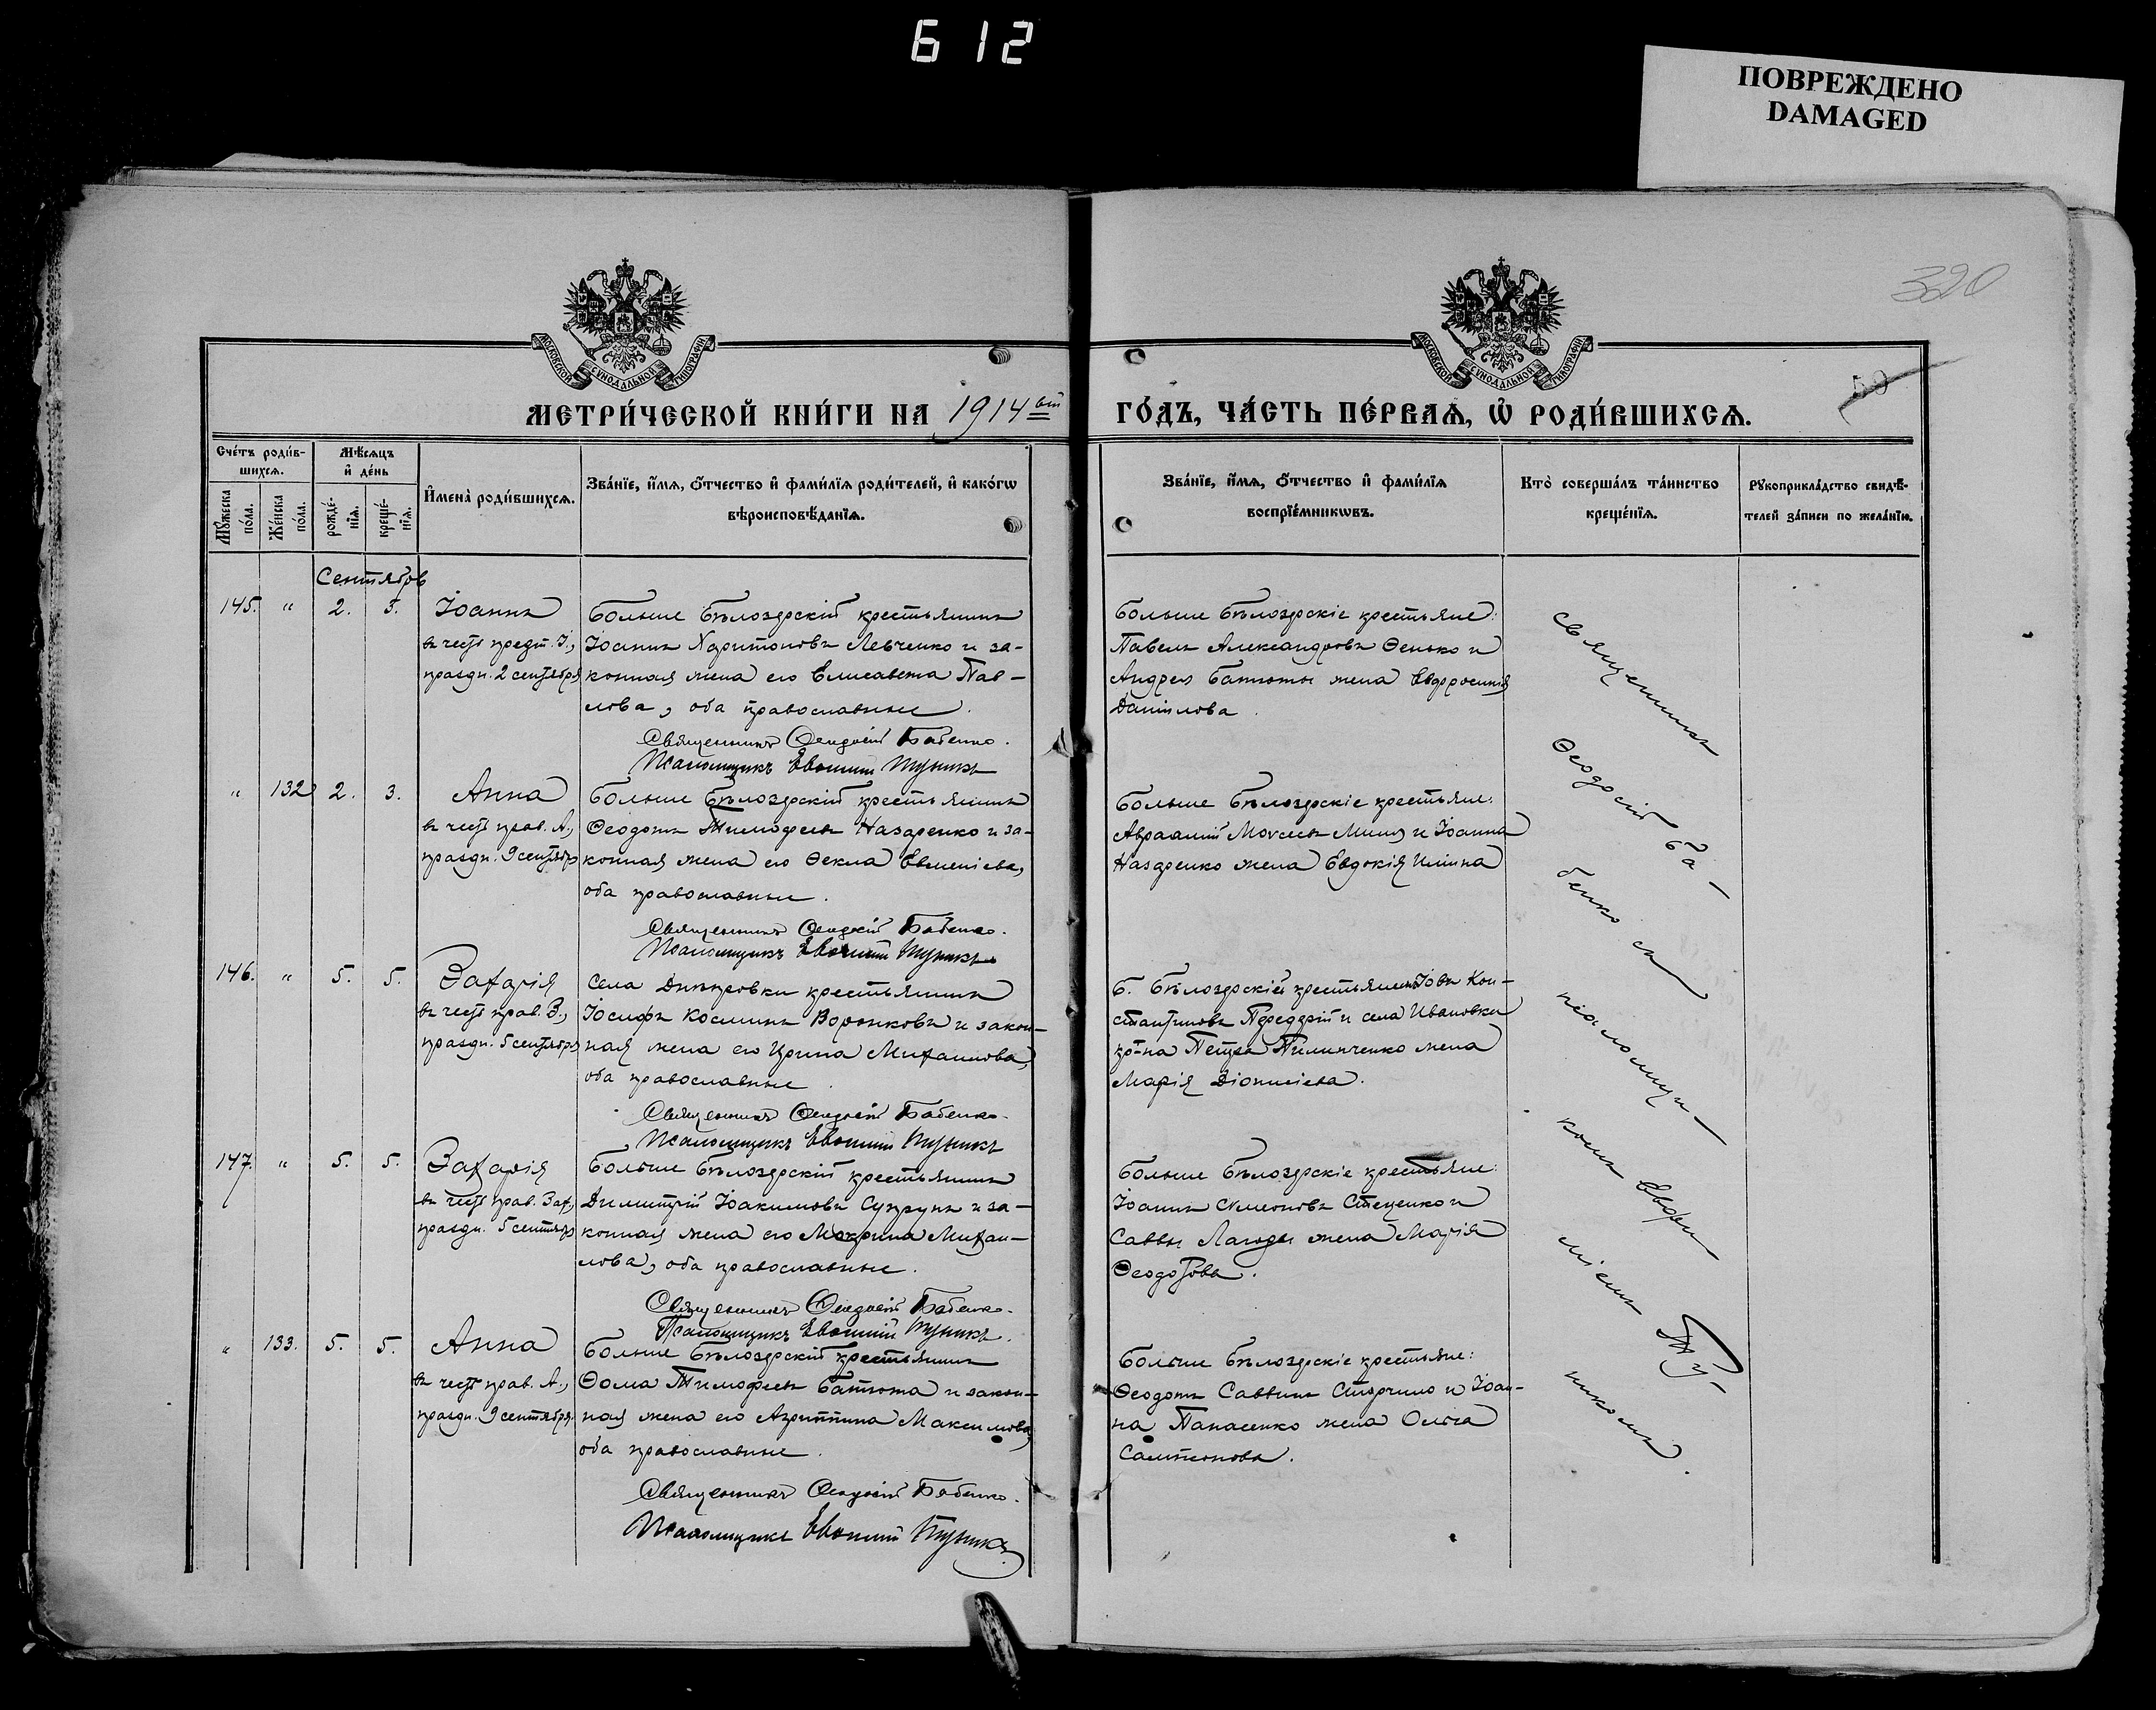 612
ПОВРЕЖДЕНО
DAMAGED
320
50
МОСКОВСКОЙ СѴНОДАЛЬНОЙ ТИПОГРАФІИ
МОСКОВСКОЙ СѴНОДАЛЬНОЙ ТИПОГРАФІИ
МЕТРИ́ЧЕСКОЙ КНИ́ГИ НА 1914ый ГО́ДЪ, ЧА́СТЬ ПЕ́РВАѦ, Ѡ҆ РОДИ́ВШИХСѦ.
Сче́тъ роди́в-
шихсѧ.
Мꙋ́жеска
по́ла.
Же́нска
по́ла.
Мѣ́сѧцъ
и҆ де́нь
рожде́-
нїѧ.
креще́-
нїѧ.
И҆мена̀ роди́вшихсѧ.
Зва́нїе, и҆́мѧ, ѻ҆́тчество и҆ фами́лїѧ роди́телей, и҆ како́гѡ
вѣроисповѣ́данїѧ.
Зва́нїе, и҆́мѧ, ѻ҆́тчество и҆ фами́лїѧ
воспрїе́мникѡвъ.
Кто̀ соверша́лъ та́инство
креще́нїѧ.
Рꙋкоприкла́дство свидѣ́-
телей за́писи по жела́нїю.
Сентябрь
145. " 2. 5.
Іоаннъ
въ честь предт. І.,
праздн. 2 сентября
Больше Бѣлозерскій крестьянинъ
Іоаннъ Харитоновъ Левченко и за-
конная жена его Елисавета Пав-
лова, оба православные.
Священникъ Ѳеодосій Бабенко.
Псаломщикъ Евѳимій Пуникъ
Больше Бѣлозерскіе крестьяне:
Павелъ Александровъ Ѳенько и
Андрея Батюты жена Евфросинія
Даніилова.
" 132 2. 3.
Анна
въ честь прав. А.,
праздн. 9 сентября
Больше Бѣлозерскій крестьянинъ
Ѳеодотъ Тимофеевъ Назаренко и за-
конная жена его Ѳекла Евменіева,
оба православные.
Священникъ Ѳеодосій Бабенко.
Псаломщикъ Евѳимій Пуникъ
Больше Бѣлозерскіе крестьяне:
Авраамій Моѵсеевъ и Іоанна
Назаренко жена Евдокія Иліина
146. " 5. 5.
Захарія
въ честь прав. З.,
праздн. 5 сентября
Села Днѣпровки крестьянинъ
Іосифъ Косминъ Воронковъ и закон-
ная жена его Ирина Михаилова,
оба православные.
Священникъ Ѳеодосій Бабенко.
Псаломщикъ Евѳимій Пуникъ
Б. Бѣлозерскій крестьянинъ Іовъ Кон-
стантиновъ Передерій и села Ивановки
кр-на Петра Пилипченко жена
Марія Діонисіева.
147. " 5. 5.
Захарія
въ честь прав. Зах.,
праздн. 5 сентября
Больше Бѣлозерскій крестьянинъ
Димитрій Іоакимовъ Супрунъ и за-
конная жена его Мокрина Михаи-
лова, оба православные.
Священникъ Ѳеодосій Бабенко.
Псаломщикъ Евѳимій Пуникъ.
Больше Бѣлозерскіе крестьяне:
Іоаннъ Симеоновъ Стеценко и
Саввы Лагоды жена Марія
Ѳеодотова.
" 133. 5. 5.
Анна
въ честь прав. А.,
праздн. 9 сентября.
Больше Бѣлозерскій крестьянинъ
Ѳома Тимофеевъ Батюта и закон-
ная жена его Агриппина Максимова,
оба православные.
Священникъ Ѳеодосій Бабенко.
Псаломщикъ Евѳимій Пуникъ
Больше Бѣлозерскіе крестьяне:
Ѳеодотъ Саввинъ Сторчило и Іоан-
на Панасенко жена Ольга
Сампсонова.
Священникъ
Ѳеодосій Ба-
бенко съ
псаломщи-
комъ Евфи-
міемъ Пу-
никомъ.